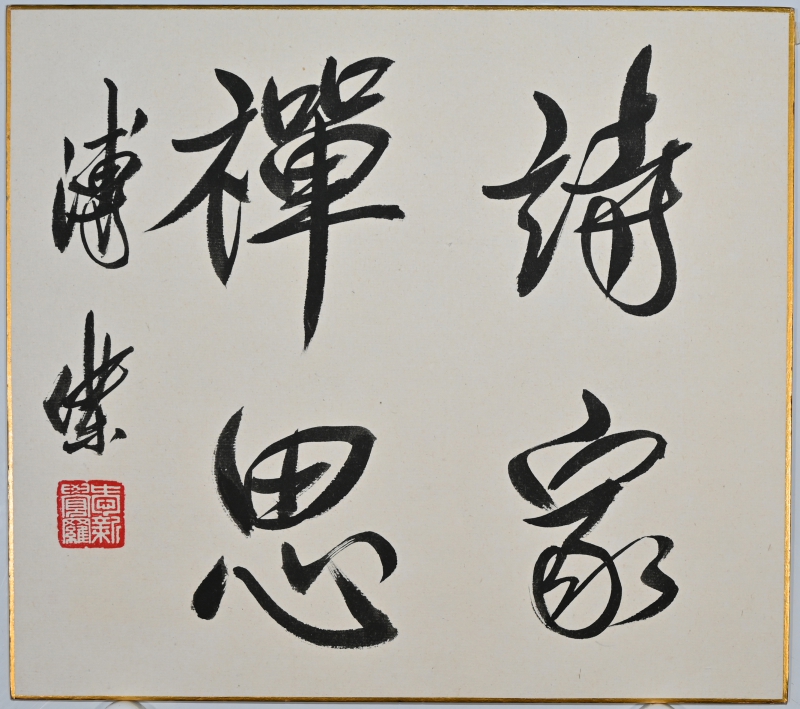 詩家
禪思
溥傑
愛新
覺羅